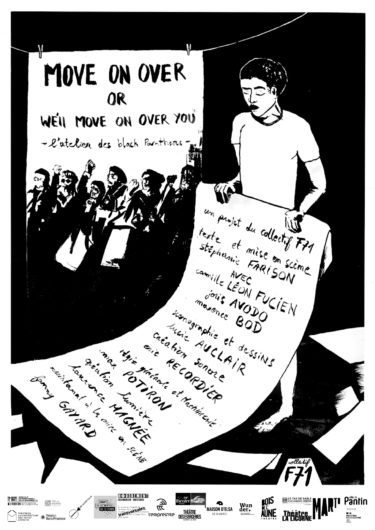 MOVE ON OVER
OR
WE'll MOVE ON OVER YOU
- l'atelier des black Panthers -
un projet du collectif F71
texte et mise en scène
stéphanie FARISON
AVEC
camille LÉON FUCIEN
joris AVODO
maxence BOD
scenographie et dessins
lucie AUCLAIR
création sonore
RECORDIER
régie générale et
max POTIRON
création lumière
laurence MAGNÉE
assistanat à la mise en scène
GAYARD
collectif
F71
MAISON D'ELSA
BOIS
DE
L'AUNE
THÉÂTRE
Théâtre
L'ECHANGEUR
Pantin